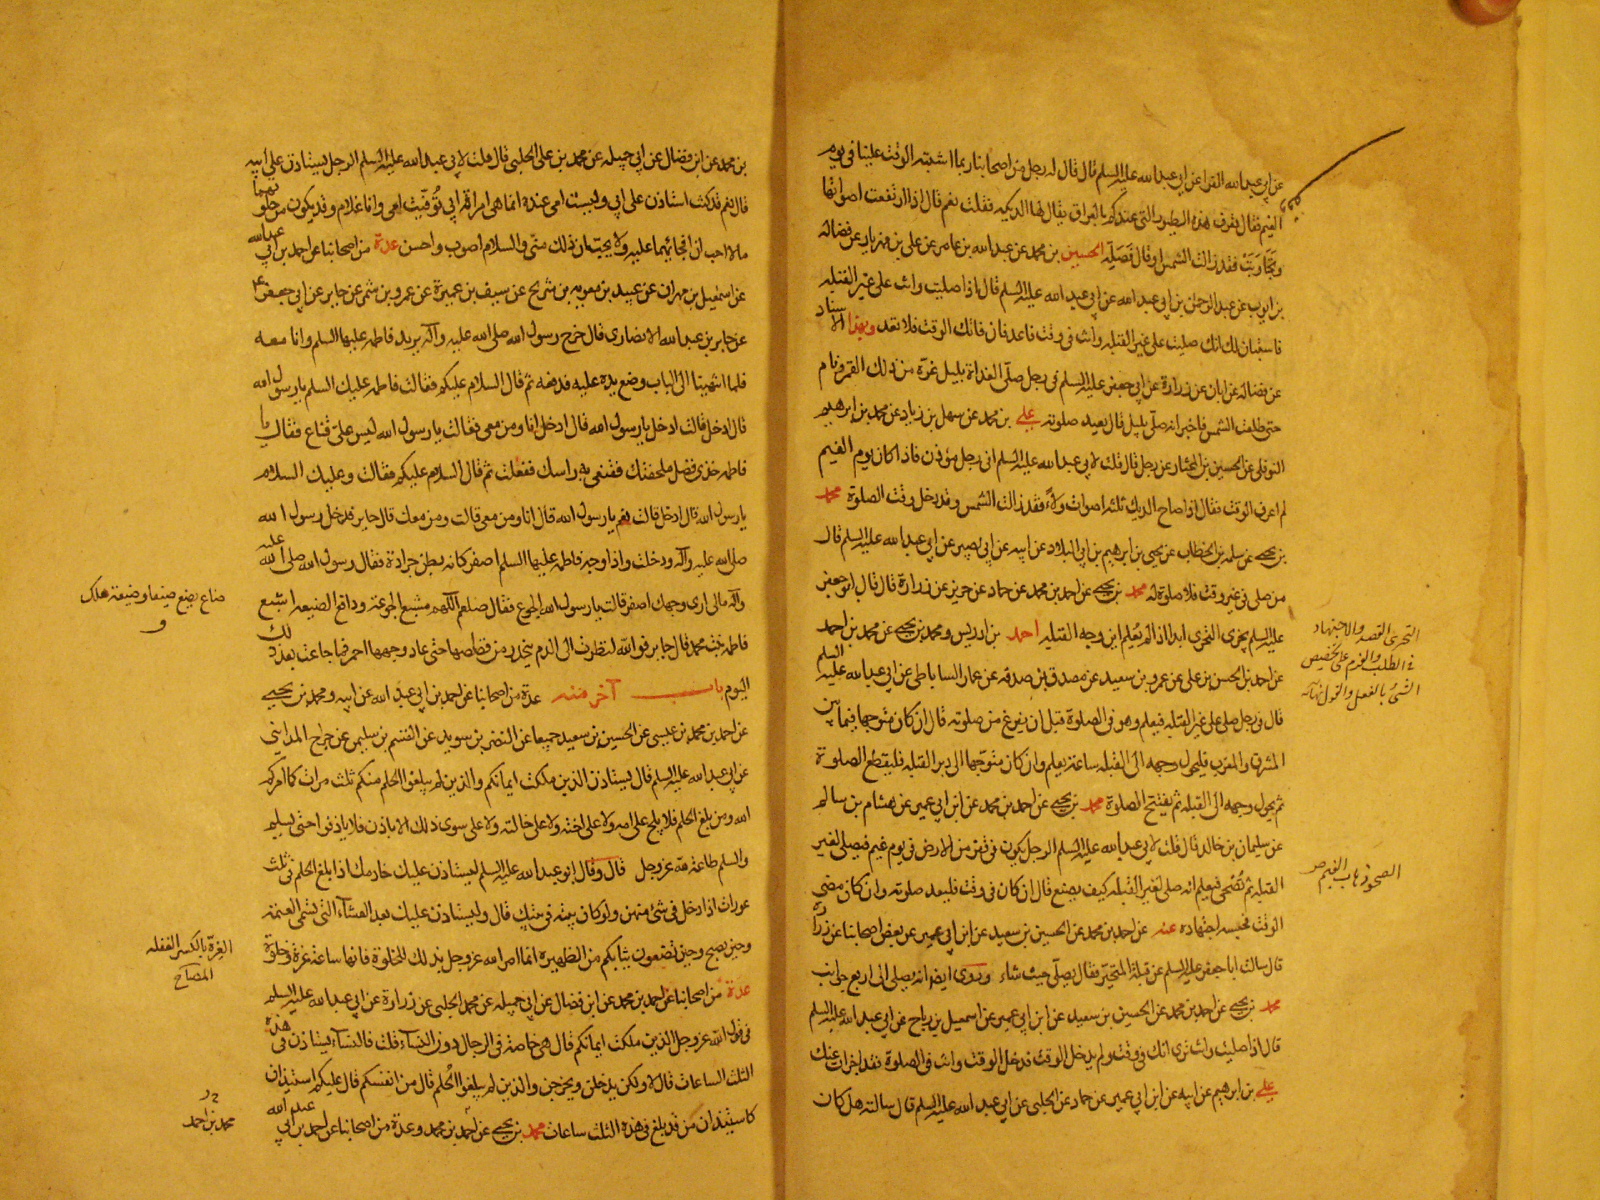 عن ابي عبد الله الفرا عن ابي عبد الله عليه السلم قال قال له رجل من اصحابنا ربما اشتبه الوقت علينا في يوم
الغيم فقال تعرف هذه الطيور التي عندكم بالعراق يقال لها الديكه فقلت نعم قال اذا ارتفعت اصواتها
وتجاوبت فقد زالت الشمس او قال فصله الحسين بن محمد عن عبد الله بن عامر عن علي بن مهزيار عن فضاله
بن ايوب عن عبد الرحمن بن ابي عبد الله عن ابي عبد الله عليه السلم قال اذا صليت وانت على غير القبله
فاستبان لك انك صليت على غير القبله وانت في وقت فاعد فان فاتك الوقت فلا تعد وبهذا الاسناد
عن فضاله عن ابان عن زرارة عن ابي جعفر عليه السلم في رجل صلى الغداة بليل غرة من ذلك القمر ونام
حتى طلعت الشمس فاخبر انه صلى بليل قال يعيد صلوته علي بن محمد عن سهل بن زياد عن محمد بن ابرهيم
النوفلي عن الحسين بن المختار عن رجل قال قلت لابي عبد الله عليه السلم اني رجل مؤذن فاذا كان يوم الغيم
لم اعرف الوقت فقال اذا صاح الديك ثلثة اصوات ولاءً فقد زالت الشمس وقد دخل وقت الصلوة محمد
بن يحيى عن سلمه بن الخطاب عن يحيى بن ابرهيم بن ابي البلاد عن ابيه عن ابي بصير عن ابي عبد الله عليه السلم قال
من صلى في غير وقت فلا صلوة له محمد بن يحيى عن احمد بن محمد عن حماد عن حريز عن زرارة قال قال ابو جعفر
عليه السلم يجزي التحري ابدا اذا لم يعلم اين وجه القبله احمد بن ادريس ومحمد بن يحيى عن محمد بن احمد
عن احمد بن الحسن بن علي عن عمرو بن سعيد عن مصدق بن صدقه عن عمار الساباطي عن ابي عبد الله عليه السلم
قال في رجل صلى على غير القبله فيعلم وهو في الصلوة قبل ان يفرغ من صلوته قال ان كان متوجها فيما بين
المشرق والمغرب فليحول وجهه الى القبله ساعة يعلم وان كان متوجها الى دبر القبله فليقطع الصلوة
ثم يحول وجهه الى القبله ثم يفتتح الصلوة محمد بن يحيى عن احمد بن محمد عن ابن ابي عمير عن هشام بن سالم
عن سليمان بن خالد قال قلت لابي عبد الله عليه السلم الرجل يكون في قفر من الارض في يوم غيم فيصلي لغير
القبله ثم تضحي فيعلم انه صلى لغير القبله كيف يصنع قال ان كان في وقت فليعد صلوته وان كان مضى
الوقت فحسبه اجتهاده عنه عن احمد بن محمد عن الحسين بن سعيد عن ابن ابي عمير عن بعض اصحابنا عن زرارة
قال سالت ابا جعفر عليه السلم عن قبلة المتحير فقال يصلي حيث شاء وروي ايضا انه يصلي الى اربع جوانب
محمد بن يحيى عن احمد بن محمد عن الحسين بن سعيد عن ابن ابي عمير عن اسمعيل بن رياح عن ابي عبد الله عليه السلم
قال اذا صليت وانت ترى انك في وقت ولم يدخل الوقت فدخل الوقت وانت في الصلوة فقد اجزات عنك
علي بن ابرهيم عن ابيه عن ابن ابي عمير عن حماد عن الحلبي عن ابي عبد الله عليه السلم قال سالته هل كان
التحري القصد والاجتهاد
في الطلب والعزم على تخصيص
الشئ بالفعل والقول نهايه
الصحو ذهاب الغيم ص
بن محمد عن ابن فضال عن ابي جميله عن محمد بن علي الحلبي قال قلت لابي عبد الله عليه السلم الرجل يستاذن على ابيه
قال نعم قد كنت استاذن على ابي وليست امي عنده انما هي امراة ابي توفيت امي وانا غلام وقد يكون من خلوتهما
ما لا احب ان افجاهما عليه ولا يحبان ذلك مني والسلام اصوب واحسن عدة من اصحابنا عن احمد بن ابي عبد الله
عن اسمعيل بن مهران عن عبيد بن معويه بن شريح عن سيف بن عميرة عن عمرو بن شمر عن جابر عن ابي جعفر ع
عن جابر بن عبد الله الانصاري قال خرج رسول الله صلى الله عليه وآله يريد فاطمه عليها السلم وانا معه
فلما انتهينا الى الباب وضع يده عليه فدفعه ثم قال السلام عليكم فقالت فاطمه عليك السلم يا رسول الله
قال ادخل قالت ادخل يا رسول الله قال ادخل انا ومن معي فقالت يا رسول الله ليس علي قناع فقال يا
فاطمه خذي فضل ملحفتك فقنعي به راسك ففعلت ثم قال السلام عليكم فقالت وعليك السلام
يا رسول الله قال ادخل قالت نعم يا رسول الله قال انا ومن معي قالت ومن معك قال جابر فدخل رسول الله
صلى الله عليه وآله ودخلت واذا وجه فاطمه عليها السلم اصفر كانه بطن جرادة فقال رسول الله صلى الله عليه
وآله مالي ارى وجهك اصفر قالت يا رسول الله الجوع فقال صلعم اللهم مشبع الجوعه ودافع الضيعه اشبع
فاطمه بنت محمد قال جابر فو الله لنظرت الى الدم ينحدر من قصاصها حتى عاد وجهها احمر فما جاعت بعد ذلك
اليوم باب آخر منه عدة من اصحابنا عن احمد بن ابي عبد الله عن ابيه ومحمد بن يحيى
عن احمد بن محمد بن عيسى عن الحسين بن سعيد جميعا عن النضر بن سويد عن القسم بن سليمن عن جراح المدايني
عن ابي عبد الله عليه السلم قال ليستاذن الذين ملكت ايمانكم والذين لم يبلغوا الحلم منكم ثلث مرات كما امركم
الله ومن بلغ الحلم فلا يلج على امه ولا على اخته ولا على خالته ولا على سوى ذلك الا باذن فلا ياذنوا حتى يسلم
والسلم طاعة لله عز وجل قال وقال ابو عبد الله عليه السلم ليستاذن عليك خادمك اذا بلغ الحلم في ثلث
عورات اذا دخل في شئ منهن ولو كان بيته في بيتك قال وليستاذن عليك بعد العشاء التي تسمى العتمة
وحين يصبح وحين تضعون ثيابكم من الظهيرة انما امر الله عز وجل بذلك للخلوة فانها ساعة غرة وخلوة
عدة من اصحابنا عن احمد بن محمد عن ابن فضال عن ابي جميله عن محمد الحلبي عن زرارة عن ابي عبد الله عليه السلم
في قول الله عز وجل الذين ملكت ايمانكم قال هي خاصة في الرجال دون النساء قلت فالنساء يستاذن في هذه
الثلث الساعات قال لا ولكن يدخلن ويخرجن والذين لم يبلغوا الحلم قال من انفسكم قال عليكم استيذان
كاستيذان من قد بلغ في هذه الثلث ساعات محمد بن يحيى عن احمد بن محمد وعدة من اصحابنا عن احمد بن ابي عبد الله
ضاع يضيع ضيعا وضيعة هلك
الغرة بالكسر الغفله
المصباح
محمد بن احمد